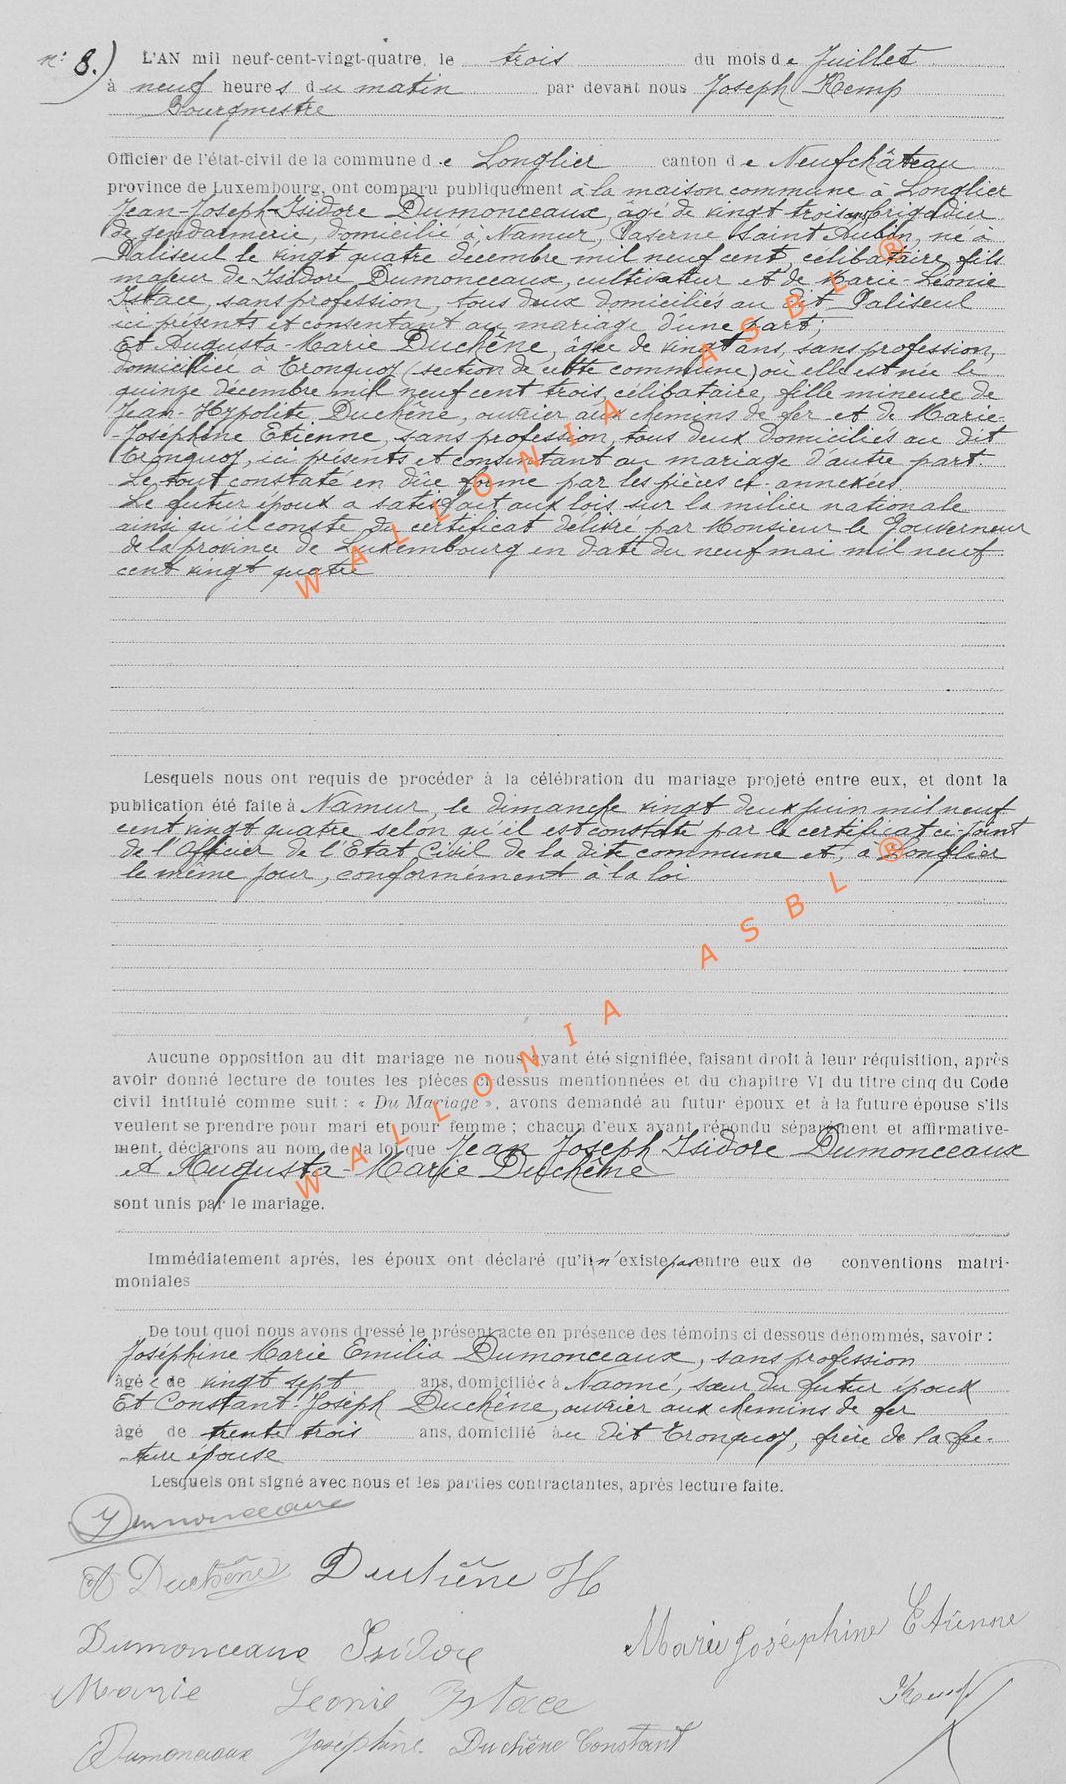 n° 8.) L'AN mil neuf-cent-vingt-quatre, le trois du mois de Juillet
à neuf heures du matin par devant nous Joseph Kemp
Bourgmestre
Officier de l'état-civil de la commune de Longlier canton de Neufchâteau
province de Luxembourg, ont comparu publiquement à la maison commune à Longlier
Jean-Joseph-Isidore Dumonceaux, âgé de vingt trois ans brigadier
de gendarmerie, domicilié à Namur, Caserne Saint Aubin, né à
Paliseul le vingt quatre décembre mil neuf cent, célibataire, fils
majeur de Isidore Dumonceaux, cultivateur et de Marie-Léonie
Istace, sans profession, tous deux domiciliés au dit Paliseul
ici présents et consentant au mariage d'une part;
Et Augusta-Marie Duchêne, âgée de vingt ans, sans profession,
domiciliée à Tronquoy (section de cette commune) où elle est née le
quinze décembre mil neuf cent trois, célibataire, fille mineure de
Jean-Hypolite Duchêne, ouvrier aux chemins de fer et de Marie-
-Joséphine Etienne, sans profession, tous deux domiciliés au dit
Tronquoy, ici présents et consentant au mariage d'autre part.
Le tout constaté en dûe forme par les pièces ci-annexées
Le futur époux a satisfait aux lois sur la milice nationale
ainsi qu'il conste du certificat délivré par Monsieur le Gouverneur
de la province de Luxembourg en date du neuf mai mil neuf
cent vingt quatre
Lesquels nous ont requis de procéder à la célébration du mariage projeté entre eux, et dont la
publication été faite à Namur, le dimanche vingt deux juin mil neuf
cent vingt quatre selon qu'il est constaté par le certificat ci-joint
de l'Officier de l'Etat Civil de la dite commune et, à Longlier
le même jour, conformément à la loi
Aucune opposition au dit mariage ne nous ayant été signifiée, faisant droit à leur réquisition, après
avoir donné lecture de toutes les pièces ci dessus mentionnées et du chapitre VI du titre cinq du Code
civil intitulé comme suit : « Du Mariage », avons demandé au futur époux et à la future épouse s'ils
veulent se prendre pour mari et pour femme ; chacun d'eux ayant répondu séparément et affirmative-
ment, déclarons au nom de la loi que Jean Joseph Isidore Dumonceaux
et Augusta-Marie Duchêne
sont unis par le mariage.
Immédiatement après, les époux ont déclaré qu'il n'existe pas entre eux de conventions matri-
moniales
De tout quoi nous avons dressé le présent acte en présence des témoins ci dessous dénommés, savoir :
Joséphine Marie Emilia Dumonceaux, sans profession
âgée de vingt sept ans, domiciliée à Naomé, sœur du futur époux
Et Constant-Joseph Duchêne, ouvrier aux chemins de fer
âgé de trente trois ans, domicilié au dit Tronquoy, frère de la fu-
ture épouse
Lesquels ont signé avec nous et les parties contractantes, après lecture faite.
Dumonceaux
A Duchêne Duchêne H
Dumonceaux Isidore Marie Joséphine Etienne
Marie Leonie Istace Kemp
Dumonceaux Joséphine. Duchêne Constant
WALLONIA ASBL ®
WALLONIA ASBL ®